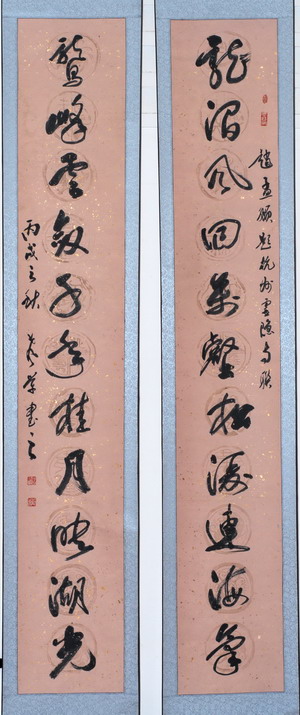 趙孟頫題杭州靈隱寺聯
龍澗風回萬壑松濤連海氣
鷲峰雲斂千年桂月映湖光
丙戌之秋
書之